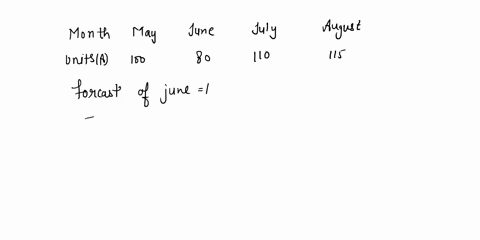 Month May June July August
Units(A) 100 80 110 115
forcast of june =1
-